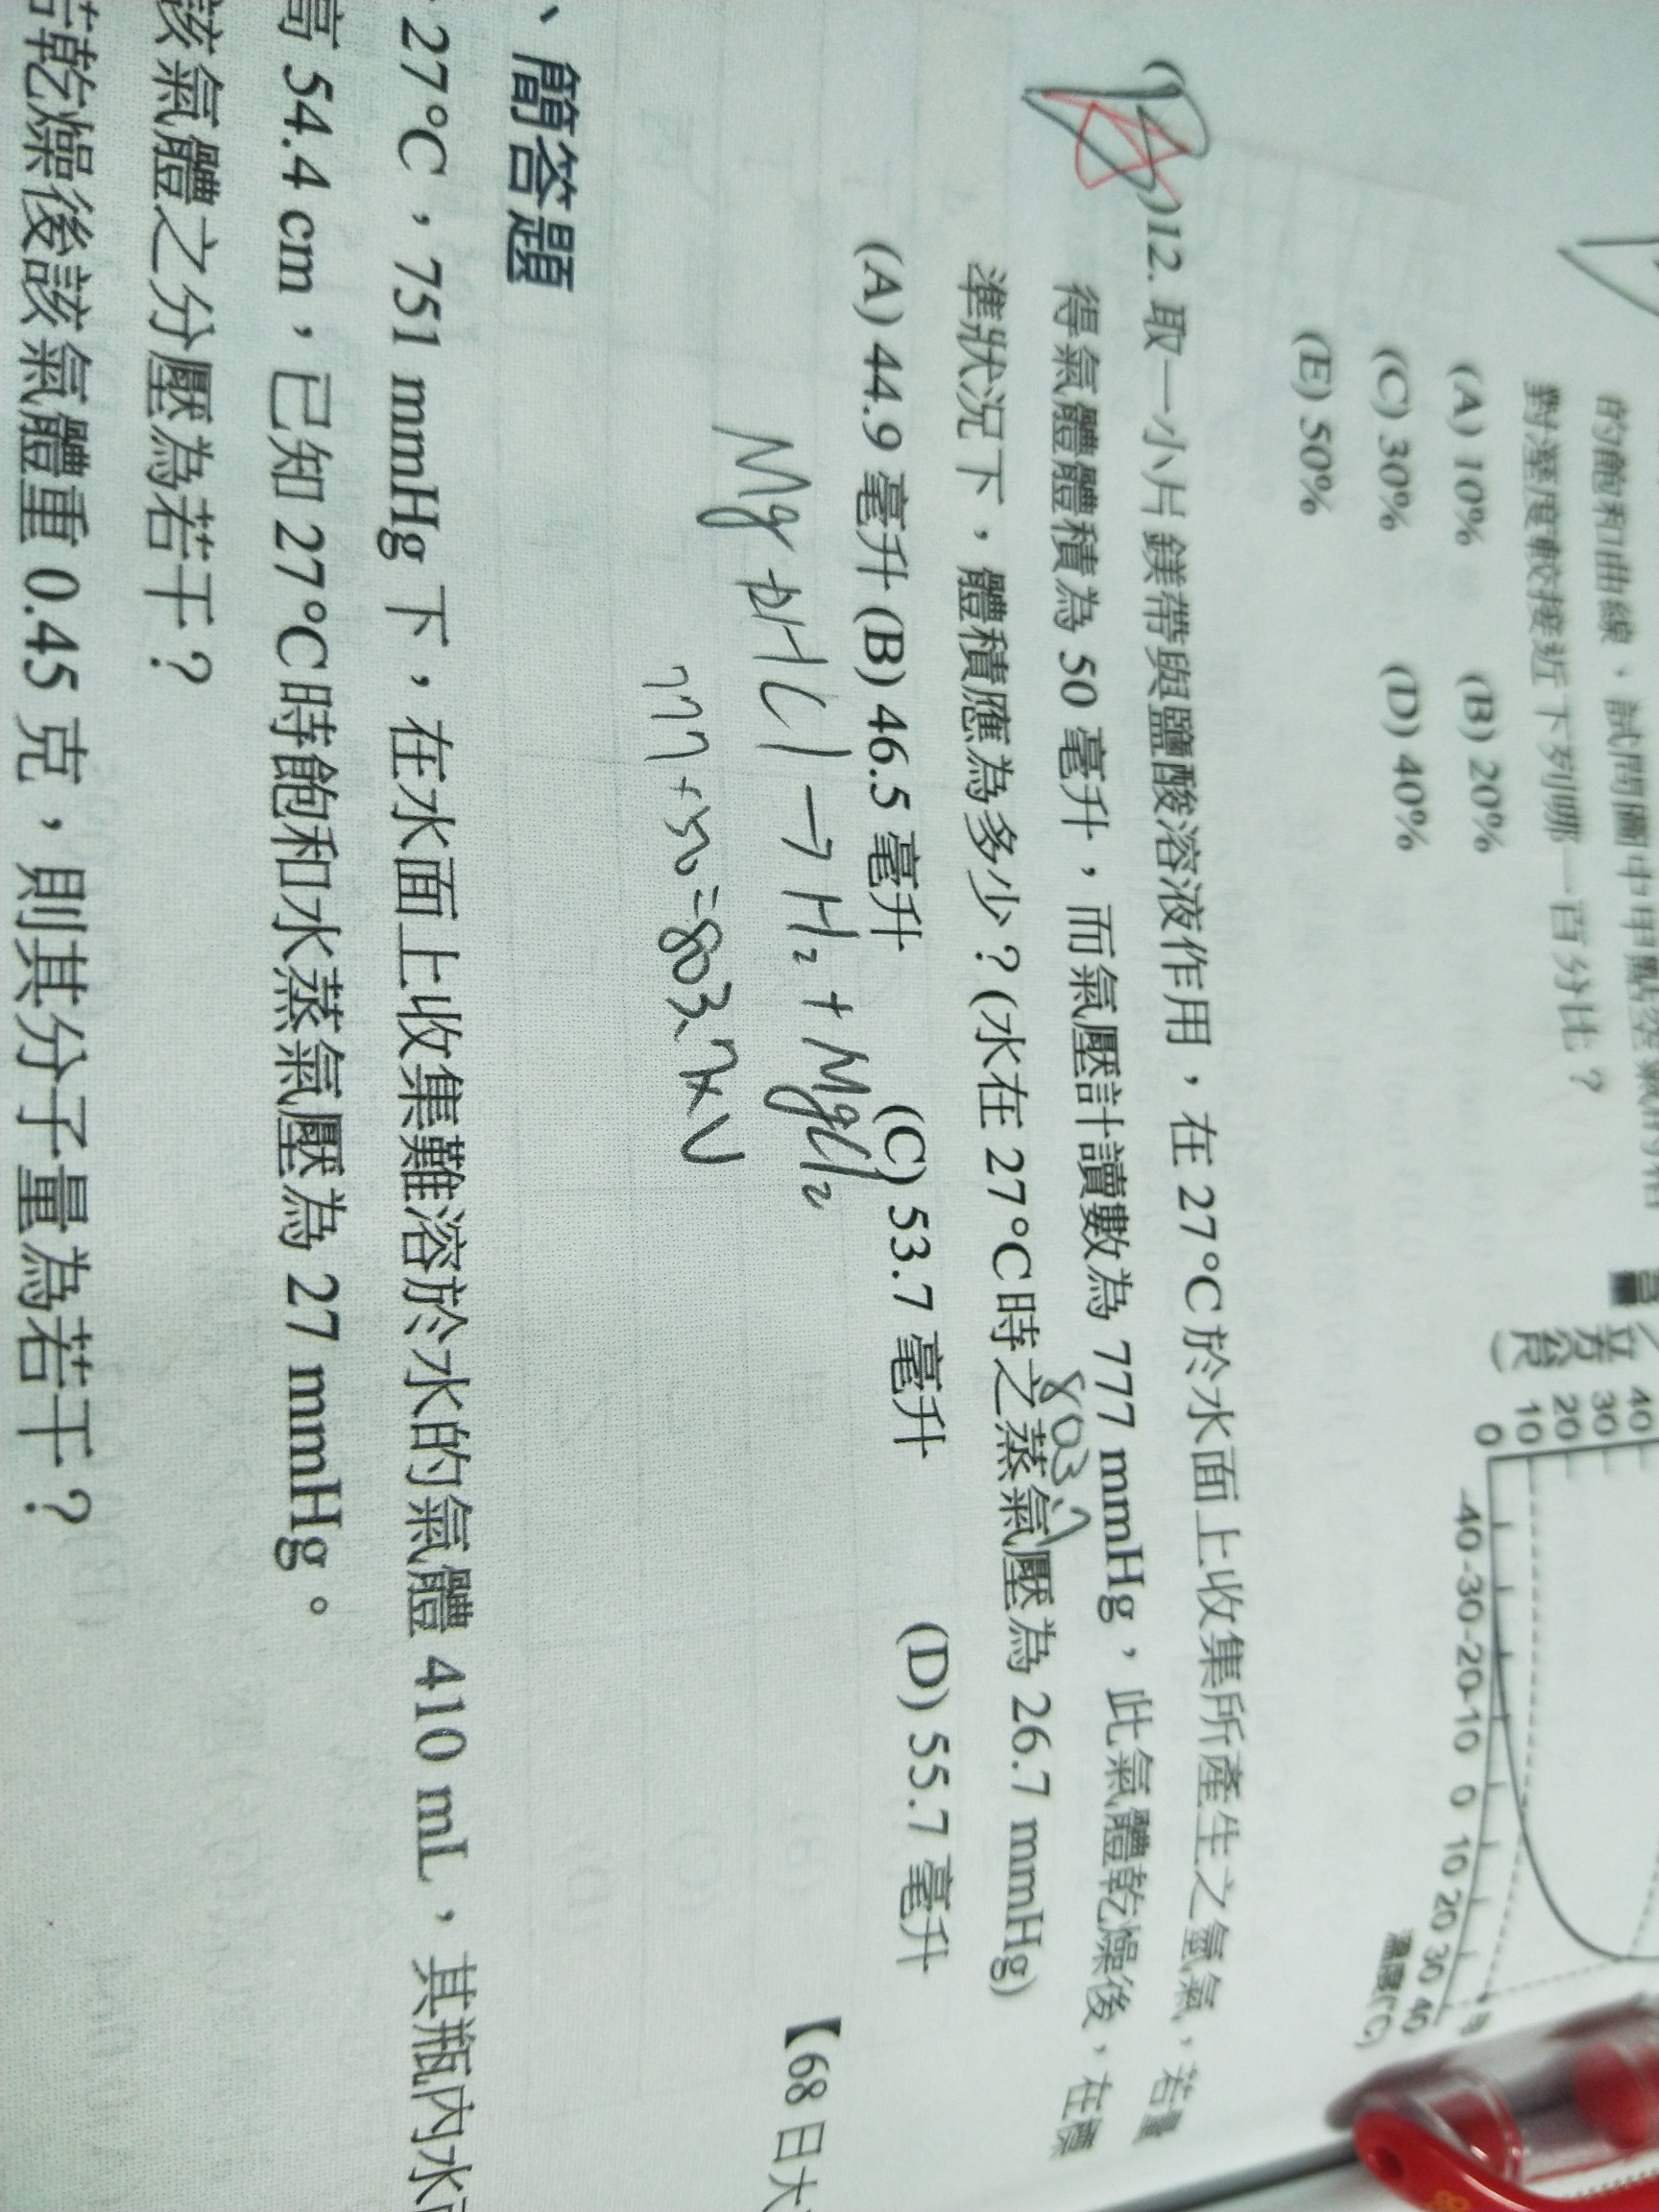 的飽和曲線，試問圖中甲點空氣的相
對溼度較接近下列哪一百分比？
(A) 10% (B) 20%
(C) 30% (D) 40%
(E) 50%
立方公尺)
40
30
20
10
0
-40 -30 -20 -10 0 10 20 30 40
溫度(℃)
)12. 取一小片鎂帶與鹽酸溶液作用，在 27℃於水面上收集所產生之氫氣，若量
得氣體體積為 50 毫升，而氣壓計讀數為 777 mmHg，此氣體乾燥後，在標
803.7
準狀況下，體積應為多少？(水在 27℃時之蒸氣壓為 26.7 mmHg)
(A) 44.9 毫升 (B) 46.5 毫升 (C) 53.7 毫升 (D) 55.7 毫升
【68 日大
Mg + HCl → H₂ + MgCl₂
777 × 50 = 803.7 × V
、簡答題
27℃，751 mmHg 下，在水面上收集難溶於水的氣體 410 mL，其瓶內水
高 54.4 cm，已知 27℃時飽和水蒸氣壓為 27 mmHg。
該氣體之分壓為若干？
若乾燥後該氣體重 0.45 克，則其分子量為若干？